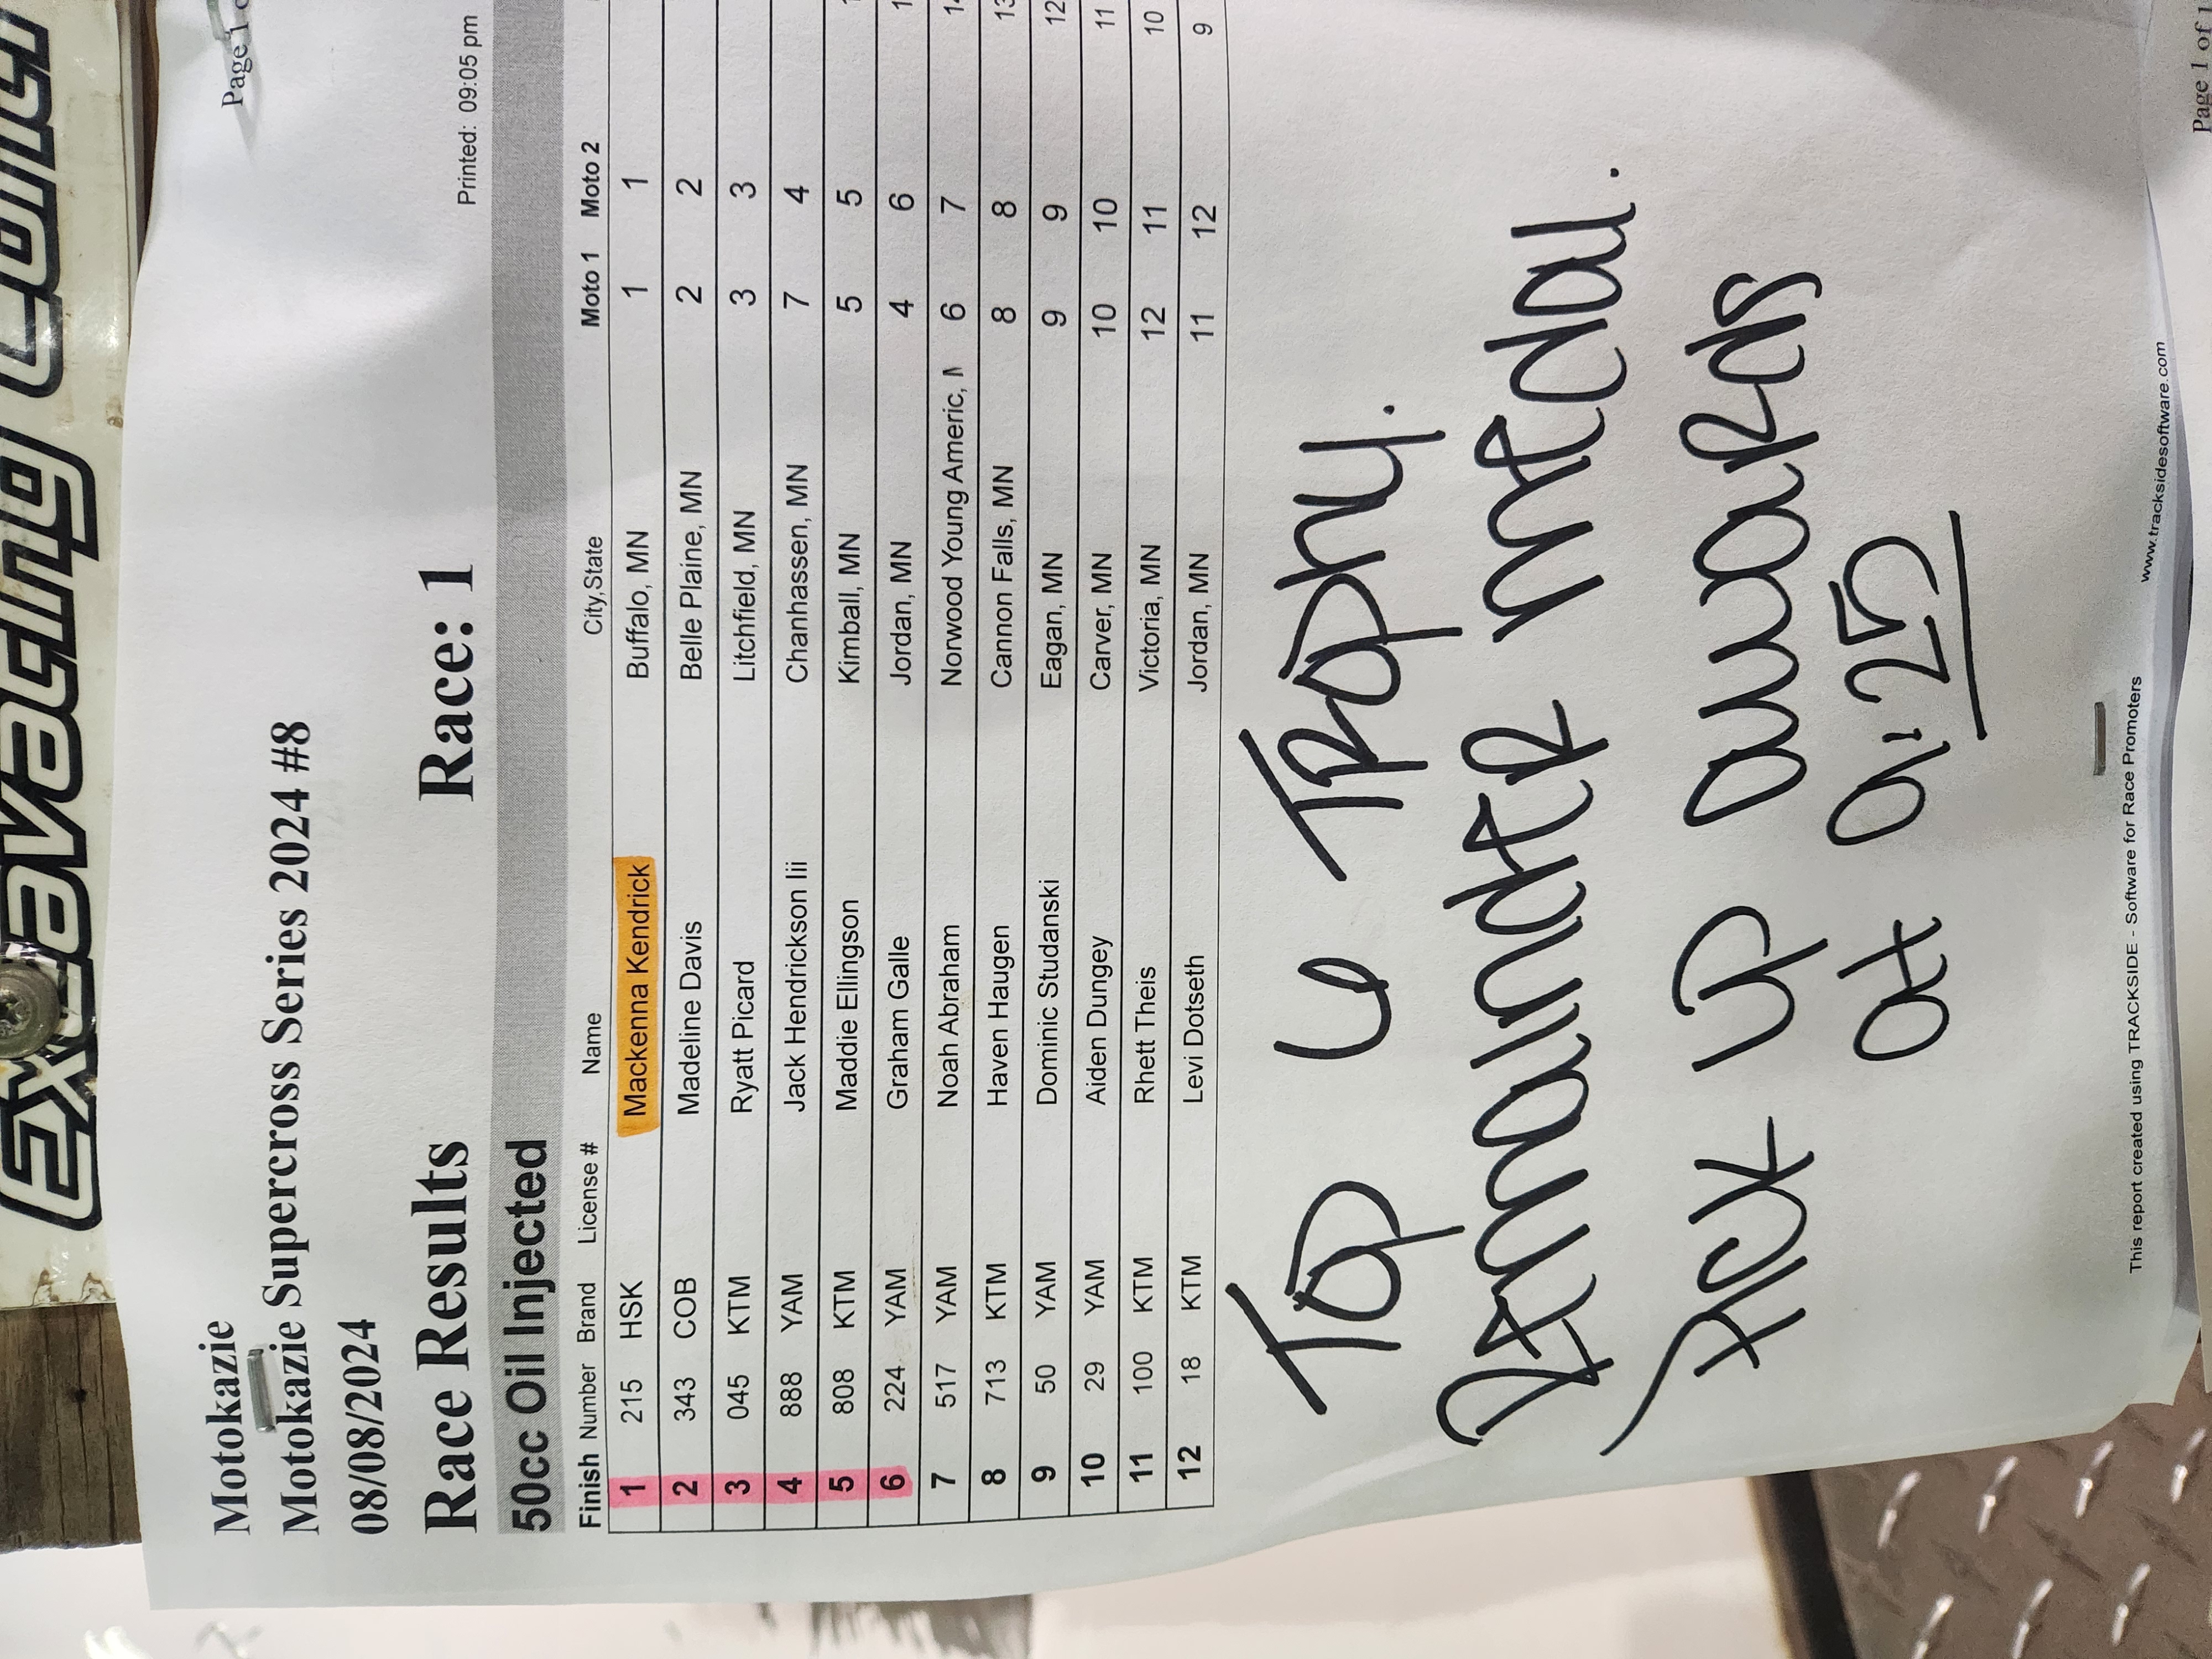 Excavating
Page 1 o
Motokazie
Motokazie Supercross Series 2024 #8
08/08/2024
Printed: 09:05 pm
Race Results Race: 1
50cc Oil Injected
Finish Number Brand License # Name City,State Moto 1 Moto 2
1 215 HSK Mackenna Kendrick Buffalo, MN 1 1
2 343 COB Madeline Davis Belle Plaine, MN 2 2
3 045 KTM Ryatt Picard Litchfield, MN 3 3
4 888 YAM Jack Hendrickson Iii Chanhassen, MN 7 4
5 808 KTM Maddie Ellingson Kimball, MN 5 5
6 224 YAM Graham Galle Jordan, MN 4 6
7 517 YAM Noah Abraham Norwood Young Americ, 6 7
8 713 KTM Haven Haugen Cannon Falls, MN 8 8 13
9 50 YAM Dominic Studanski Eagan, MN 9 9 12
10 29 YAM Aiden Dungey Carver, MN 10 10 11
11 100 KTM Rhett Theis Victoria, MN 12 11 10
12 18 KTM Levi Dotseth Jordan, MN 11 12 9
TOP 6 TROPHY.
REMAINDER MEDAL.
PICK UP AWARDS
At 9:25
This report created using TRACKSIDE - Software for Race Promoters www.tracksidesoftware.com
Page 1 of 1